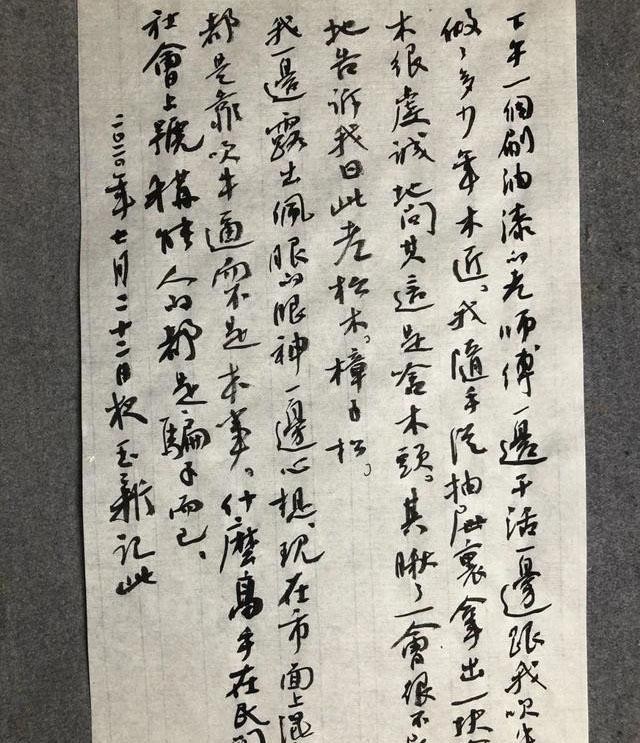 下午一個刷油漆的老师傅一邊干活一邊跟我吹牛
做了多少年木匠。我隨手從抽屜裏拿出一块
木很虔诚地问其這是啥木頭。其瞅了一會很不
地告诉我曰此老松木。樟子松。
我一邊露出佩服的眼神一邊心想。现在市面上混
都是靠吹牛逼而不是本事。什麼高手在民间
社會上號稱能人的都是騙子而已。
二〇二〇年七月二十二日夜玉新记此